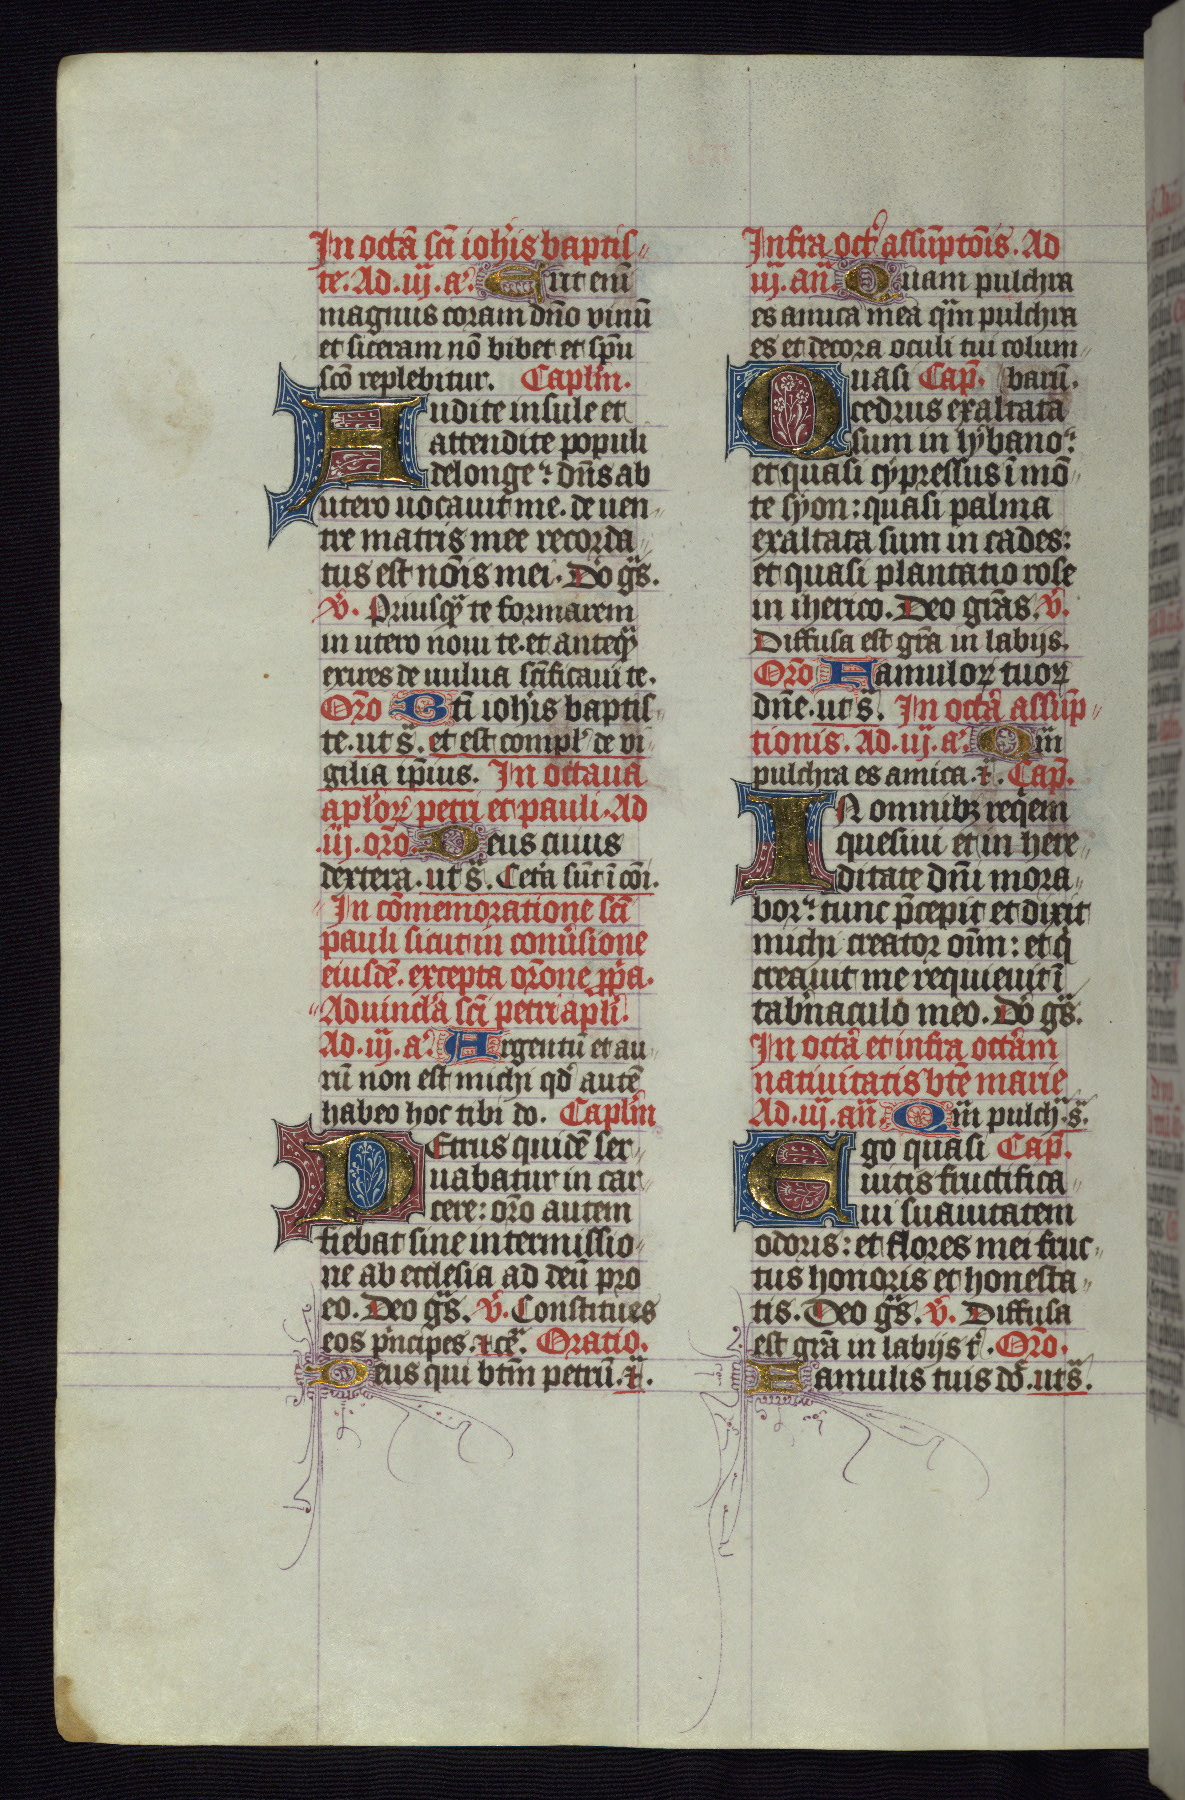 In octa᷈ sc̄i ioh̄is baptis
te. Ad .iij. a᷈. Erit eni᷈
magnus coram dn̄o vinū
et siceram nō bibet et sp̄u
sc̄o replebitur. Caplm̄.
Audite insule et
attendite populi
delonge: dn̄s ab
utero uocauit me. de uen
tre matris mee recorda
tus est nōis mei. Dō gr̄s.
v̄. Priusq̄ te formarem
in utero noui te. et anteq̄
exires de uulua sc̄ificaui te.
Orō Bt̄i ioh̄is baptis
te. ut s̄. et est compl' de vi
gilia ip̄ius. In octaua
ap̄lor̄ petri et pauli. Ad
.iij. orō. Deus cuius
dextera. ut s̄. Cet'a sūt ī cōi.
In cōmemoratione sc̄i
pauli sicut in conu'sione
eiusdē. excepta or̄one pp̄a.
Ad uincl'a sc̄i petri ap̄li.
Ad .iij. a᷈. Argentū et au
rū non est michi qd̄ autē
habeo hoc tibi do. Caplm̄
Petrus quidē ser
uabatur in car
cere: orō autem
fiebat sine intermissio
ne ab ecclesia ad deū pro
eo. Deo gr̄s. v̄. Constitues
eos p'ncipes. et cē. Oratio.
Deus qui bt̄m petrū. et̄.
Infra oct' assūptōis. Ad
iij. an̄. Quam pulchra
es amica mea qm̄ pulchra
es et decora oculi tui colum
Quasi Cap̄. barū.
cedrus exaltata
sum in lybano:
et quasi cypressus ī mō
te syon: quasi palma
exaltata sum in cades:
et quasi plantatio rose
in iherico. Deo gr̄as. v̄.
Diffusa est gr̄a in labijs.
Orō Famulor̄ tuor̄
dn̄e. ut s̄. In octa' assūp
tionis. Ad .iij. a᷈. Qm̄
pulchra es amica. et̄. Cap̄.
IN omnibz req̄em
quesiui et in here
ditate dn̄i mora
bor: tunc p̄cepit et dixit
michi creator oīm: et q̄
creauit me requieuit ī
tab'naculo meo. Dō gr̄s.
In octa' et infra octa'm
natiuitatis bt̄e marie
Ad .iij. an̄. Qm̄ pulch'. s̄.
Ego quasi Cap̄.
uitis fructifica
ui suauitatem
odoris: et flores mei fruc
tus honoris et honesta
tis. Deo gr̄s. v̄. Diffusa
est gr̄a in labijs t'. Orō.
Famulis tuis dō. ut s̄.